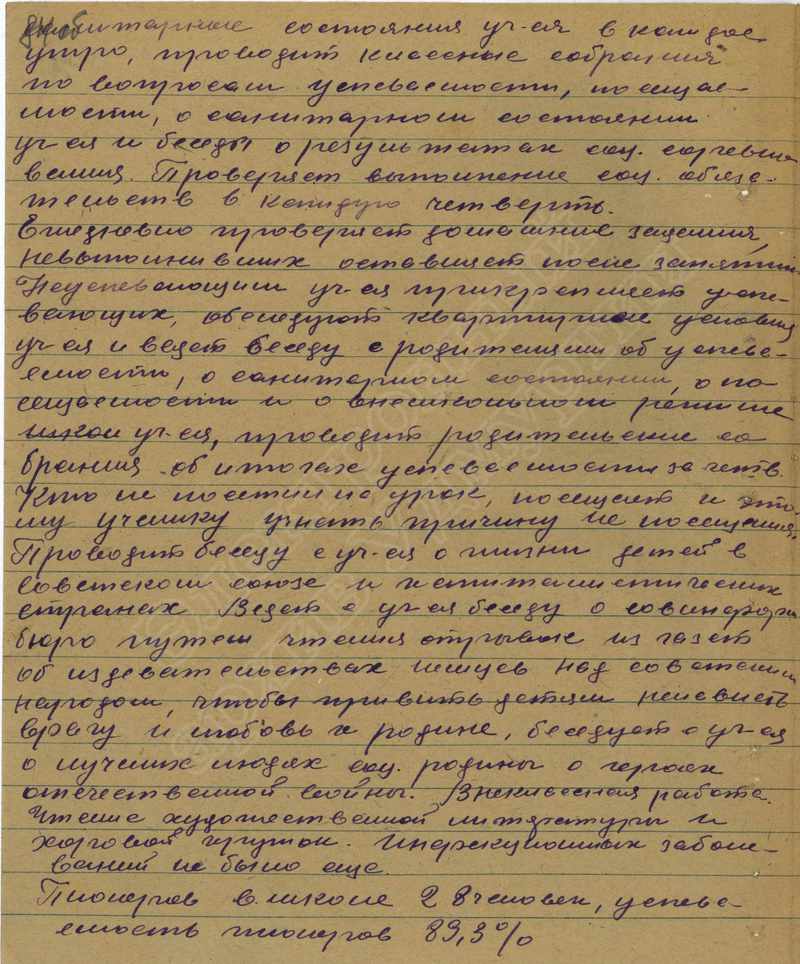 санитарные состояния уч-ся в каждое
утро, проводит классные собрания
по вопросам успеваемости, посещае-
мости, о санитарном состоянии
уч-ся и беседы о результатах соц. соревно
вания. Проверяет выполнение соц. обяза-
тельств в каждую четверть.
Ежедневно проверяет домашние задания,
невыполнивших оставляет после занятий.
Неуспевающим уч-ся прикрепляет успе-
вающих, обследует квартирные условия
уч-ся и ведет беседу с родителями об успева-
емости, о санитарном состоянии, о по-
сещаемости и о внешкольном режиме
уч-ся, проводит родительские со
брания об итогах успеваемости за четв.
Кто не постил на урок, посещает к это-
му ученику узнать причину не посещения.
Проводит беседу с уч-ся о жизни детей в
советском союзе и капиталистических
странах Ведет с уч-ся беседу о совинформ
бюро путем чтения отрывок из газет
об издевательствах немцев над советским
народом, чтобы привить детям ненависть
врагу и любовь к родине, беседует с уч-ся
о лучших людях соц. родины о героях
отечественной войны. Внеклассная работа.
Чтение художественной литратуры и
хоровой кружок. Инфекционных заболе-
ваний не было еще.
Пионеров в школе 28 человек, успева-
емость пионеров 89,3%